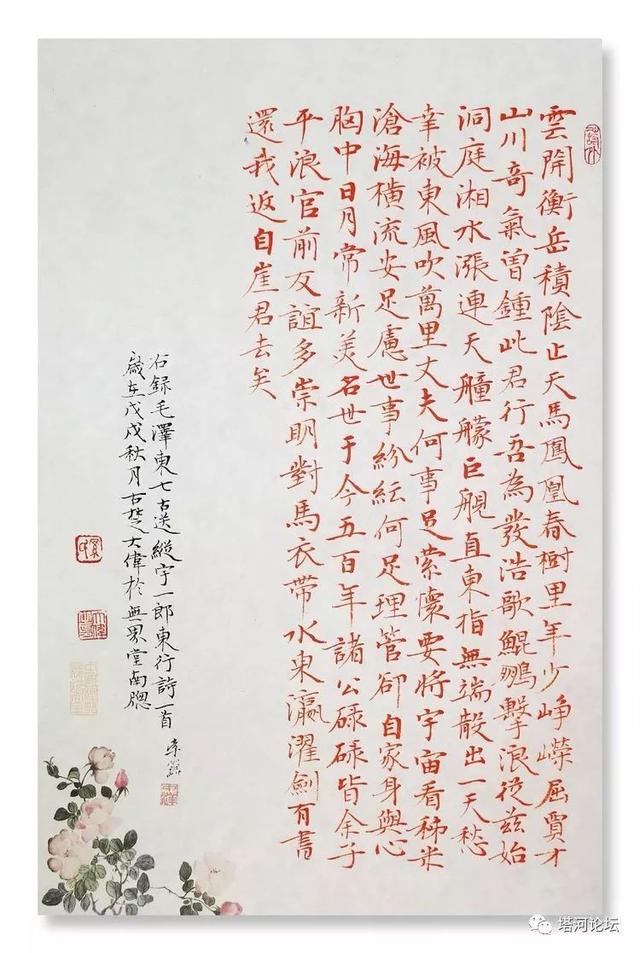 雲開衡岳積陰止天馬鳳凰春樹里年少崢嶸屈賈才
山川奇氣曾鍾此君行吾為發浩歌鯤鵬擊浪從茲始
洞庭湘水漲連天艟艨巨舰直東指無端散出一天愁
幸被東風吹萬里丈夫何事足縈懷要將宇宙看稊米
滄海橫流安足慮世事紛紜何足理管卻自家身與心
胸中日月常新美名世于今五百年諸公碌碌皆余子
平浪官前友誼多崇明對馬衣帶水東瀛濯劍有書
還我返自崖君去矣
右録毛澤東七古送縱宇一郎東行詩一首
歲在戊戌秋月古楚大偉於無界堂南牕
塔河论坛